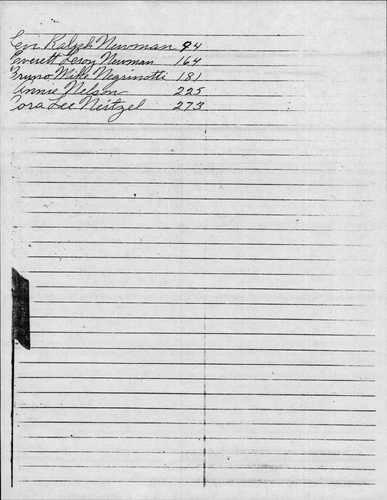 Levi Ralph Newman 94
Everett Leroy Newman 164
Bruno Mike Negrinotti 181
Annie Nelson 225
Cora Lee Neitzel 273